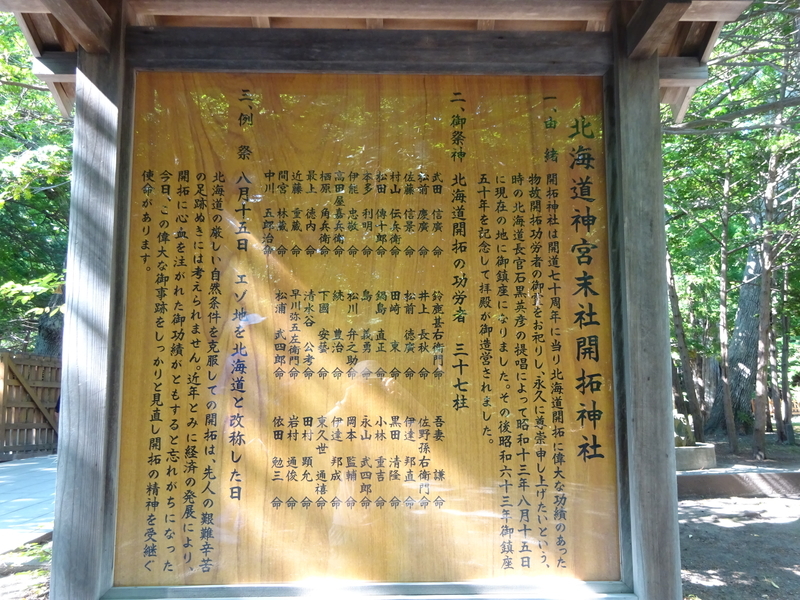 北海道神宮末社開拓神社
一、由緒 開拓神社は開道七十周年に当り北海道開拓に偉大な功績のあった
物故開拓功労者の御霊をお祀りし、永久に尊崇申し上げたいという、
時の北海道長官石黒英彦の提唱によって昭和十三年八月十五日
に現在の地に御鎮座になりました。その後昭和六十三年御鎮座
五十年を記念して拝殿が御造営されました。
二、御祭神 北海道開拓の功労者 三十七柱
武田 信廣 命 鈴鹿甚右衛門命 吾妻 謙 命
松前 慶廣 命 井上 長秋 命 佐野孫右衛門 命
佐藤 信景 命 松前 徳廣 命 伊達 邦直 命
村山 伝兵衛 命 田崎 東 命 黒田 清隆 命
松田 傳十郎 命 鍋島 直正 命 小林 重吉 命
本多 利明 命 島 義勇 命 永山 武四郎 命
伊能 忠敬 命 松川 弁之助 命 岡本 監輔 命
高田屋嘉兵衛 命 続 豊治 命 伊達 邦成 命
栖原 角兵衛 命 下國 安藝 命 東久世 通禧 命
最上 徳内 命 清水谷 公考 命 田村 顕允 命
近藤 重蔵 命 早川弥五左衛門 命 岩村 通俊 命
間宮 林蔵 命 松浦 武四郎 命 依田 勉三 命
中川 五郎治 命
三、例祭 八月十五日 エゾ地を北海道と改称した日
北海道の厳しい自然条件を克服しての開拓は、先人の艱難辛苦
の足跡ぬきには考えられません。近年とみに経済の発展により、
開拓に心血を注がれた御功績がともすると忘れがちになった
今日、この偉大な御事跡をしっかりと見直し開拓の精神を受継ぐ
使命があります。